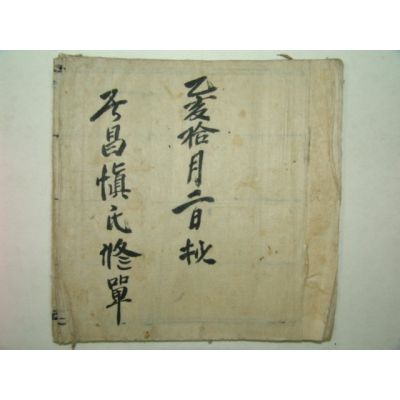 乙亥拾月二日
居昌愼氏修單